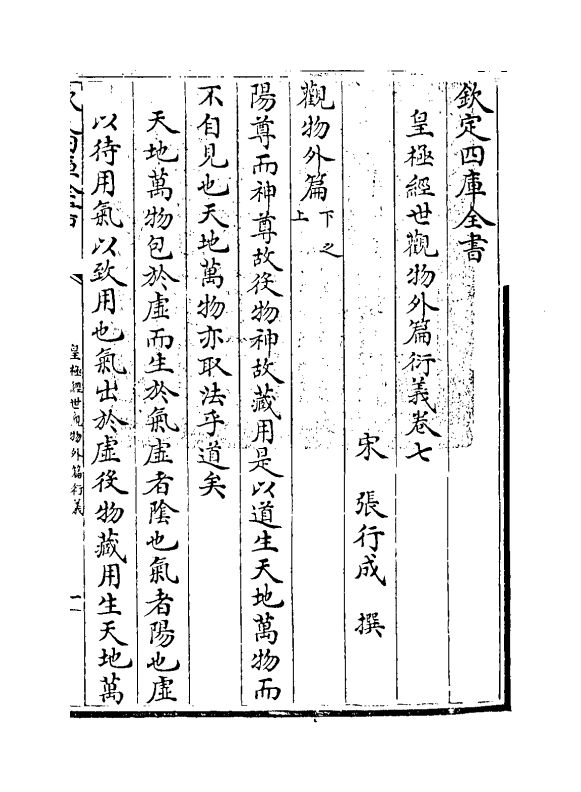 欽定四庫全書
皇極經世觀物外篇衍義卷七
宋 張行成 撰
觀物外篇下之上
陽尊而神尊故役物神故藏用是以道生天地萬物而
不自見也天地萬物亦取法乎道矣
天地萬物包於虛而生於氣虛者陰也氣者陽也虛
以待用氣以致用也氣出於虛役物藏用生天地萬
皇極經世觀物外篇衍義
一